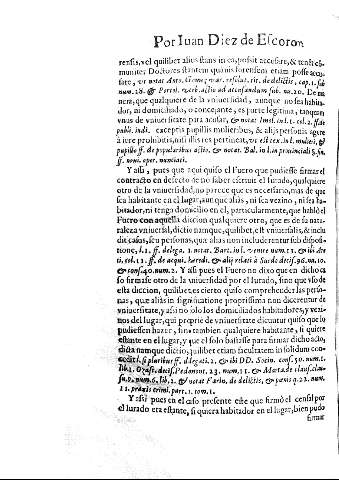 Por Iuan Diez de Escoron
rensis, vel quilibet alius stans in ea, possit accusare, & tenēt cō-
muniter Doctores stantem quamuis forensem etiam posse accu-
sare, vt notat Ant. Gome; var. resolut. tit. de delictis, cap. 1. sub
num. 28. & Portol. verb. actio ad accusandum sub. nu. 20. De ma-
nera, que qualquiere de la vniuersidad, aunque no sea habita-
dor, ni domiciliado, o concejante, es parte legitima, tanquam
vnus de vniuersitate para acusar, & notat Imol. in l. 1. col. 2. ff. de
publi. iudi. exceptis pupillis mulieribus, & alijs personis agere
à iure prohibitis, nisi illis res pertineat, vt est tex. in l. mulieri, &
pupillo ff. de popularibus actis, & notat. Bal. in l. in prouinciali §. fin.
ff. noui. oper. nunciati.
Y assi, pues que aqui quiso el Fuero que pudiesse firmar el
contracto en defecto de no saber escriuir el Iurado, qualquiere
otro de la vniuersidad, no parece que es necesario, mas de que
sea habitante en el lugar, aunque alias, ni sea vezino, ni sea ha-
bitador, ni tenga domicilio en el, particularmente, que hablò el
Fuero con aquella diccion qualquiere otro, que es de su natu-
raleza vniuersal, dictio namque, quilibet, est vniuersalis, & inclu-
dit casus, seu personas, quæ alias non includerentur sub disposi-
tione, l. 1. ff. de lega. 2. notat Bart. in l. cuius nume 11. & ibi Are
ti. col. 12. ff. de acqui. hæredi. & alij relati à Surdo decis. 96. nu. 10.
& cons. 40. num. 2. Y assi pues el Fuero no dixo que en dicho ca
so firmase otro de la vniuersidad por el Iurado, sino que vsò de
esta diccion, quilibet es cierto quiso comprehender las perso-
nas, que aliàs in significatione propriissima non dicerentur de
vniuersitate, y assi no solo los domiciliados habitadores, y vezi-
nos del lugar, qui proprie de vniuersitate dicuntur quiso que lo
pudiessen hazer, sino tambien qualquiere habitante, si quiere
estante en el lugar, y que el solo bastasse para firmar dicho acto,
dicta namque dictio, quilibet etiam facultatem in solidum con-
cedit l. si pluribus ff. de lega ti. 2. & ibi DD. Socin. cons. 50. num. 1.
lib. 1. Osasc. decis. Pedamont. 23. num. 11. & Marta de clausu. clau-
su. 9. num. 6. lib. 2. & notat Fario. de delictis, & pænis q. 22. num.
12. praxis crimi. part. 1. tom. 1.
Y assi pues en el caso presente este que firmò el censal por
el Iurado era estante, si quiera habitador en el lugar, bien pudo
firmar